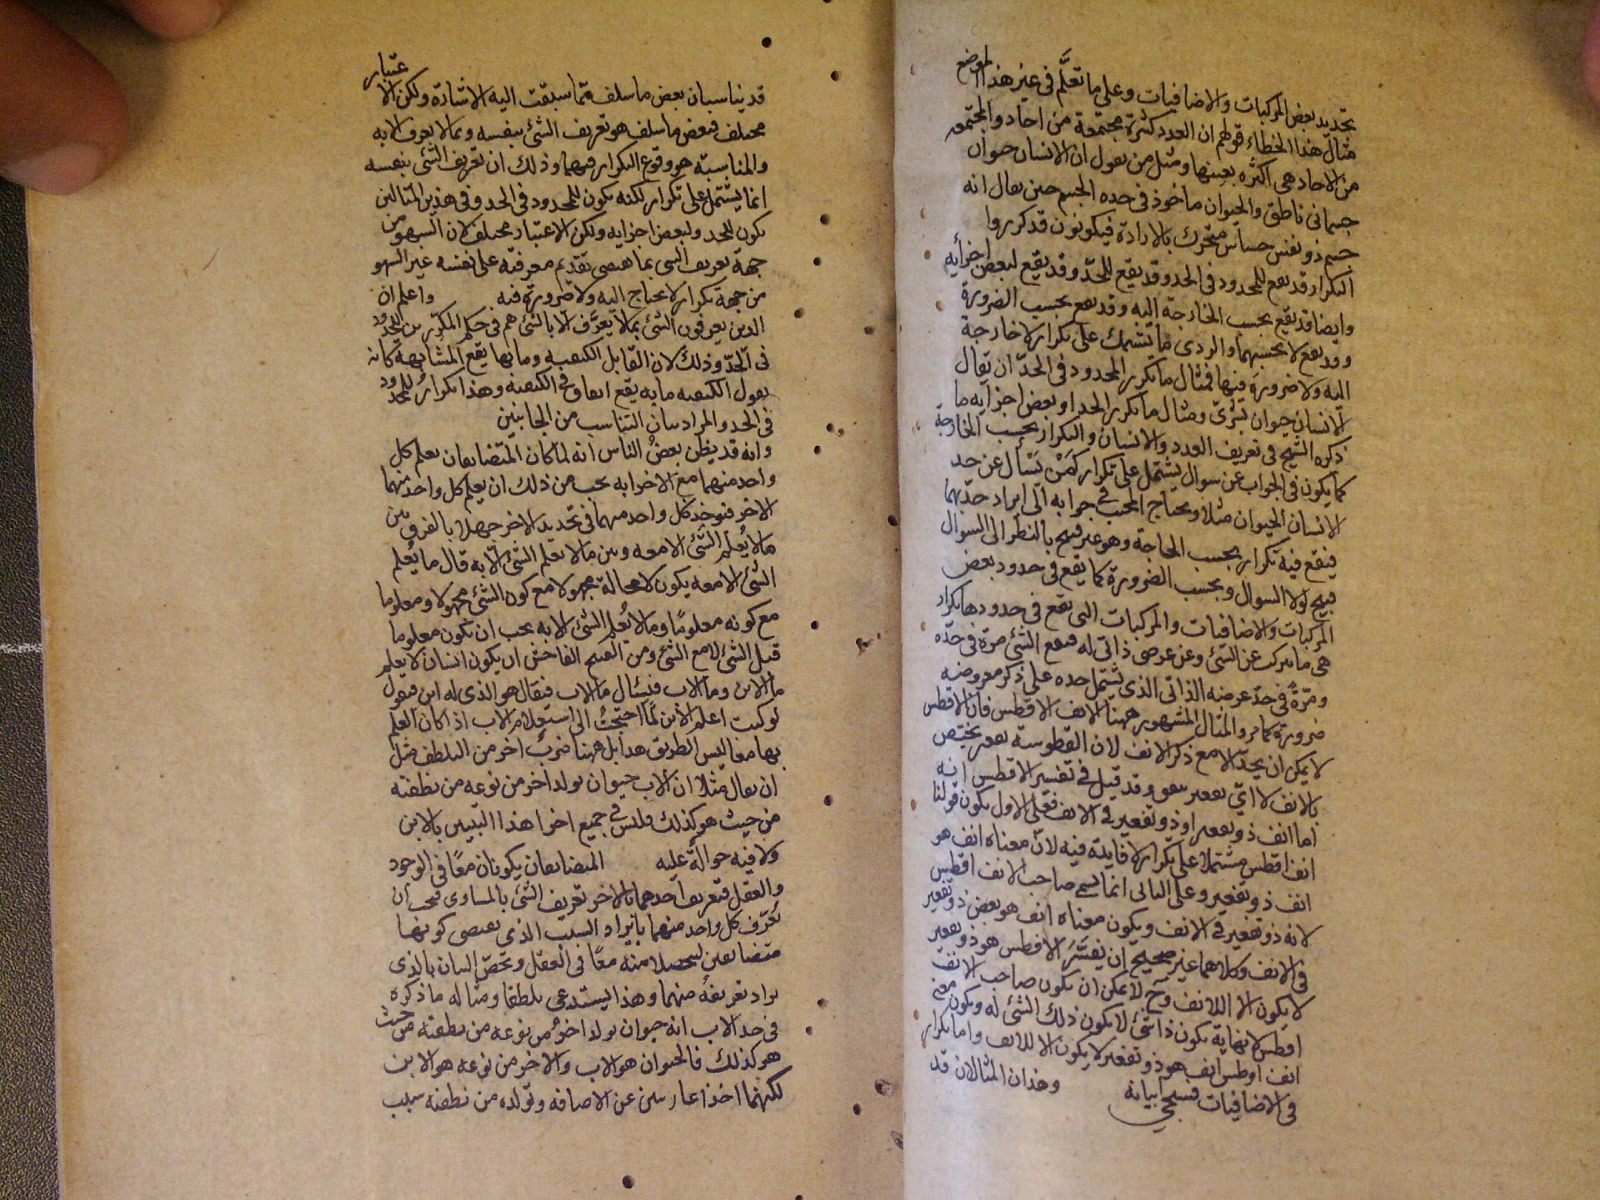 تحديد بعض المركبات والاضافيات وعلى ما تعلَّم فى غير هذا الموضع
مثال هذا الخطاء قولهم ان العدد كثرة مجتمعة من احاد والمجتمعه
من الاحاد هى الكثره بعينها ومثل من يقول ان الانسان حيوان
جسمانى ناطق والحيوان ماخوذ فى حده الجسم حين يقال انه
جسم ذو نفس حساس متحرك بالارادة فيكونون قد كرروا
التكرار قد يقع للمحدود فى الحد وقد يقع للحدّ وقد يقع لبعض اجزائه
وايضا قد يقع بحسب الحاجة اليه وقد يقع بحسب الضرورة
وقد يقع لا بحسبهما والردى ما تشتمل على تكرار لا حاجة
اليه ولا ضرورة فيها فمثال ما تكرر المحدود فى الحدّ ان يقال
الانسان حيوان بشرى ومثال ما تكرر الحد او بعض اجزايه ما
ذكره الشيخ فى تعريف العدد والانسان والتكرار بحسب الحاجة
كما يكون فى الجواب عن سوال يشتمل على تكرار كمن يسأل عن حد
الانسان الحيوان مثلا ويحتاج المجيب فى جوابه الى ايراد حدّيهما
فيقع فيه تكرار بحسب الحاجة وهو غير قبيح بالنظر الى السوال
قبيح لولا السوال وبحسب الضرورة كما يقع فى حدود بعض
المركبات والاضافيات والمركبات التى يقع فى حدودها تكرار
هى ما يتركب عن الشئ وعن عرضى ذاتى له فيقع الشئ مرة فى حدّه
ومرّةً فى حدّ عرضه الذاتى الذى يشتمل حده على ذكر معروضه
ضرورة كما مر والمثال المشهور ههنا الانف الافطس فان الافطس
لا يمكن ان يحدّ الا مع ذكر الانف لان الفطوسة تقعير يختص
بالانف لا اىّ تقعير يتفق وقد قيل فى تفسير الافطس انه
اما انف ذو تقعير او ذو تقعير فى الانف فعلى الاول يكون قولنا
انف افطس مشتملا على تكرار لا فايدة فيه لانّ معناه انف هو
انف ذو تقعير وعلى الثانى انما يسمى صاحب الانف افطس
لانه ذو تقعير فى الانف ويكون معناه انف هو بعض ذو تقعير
فى الانف وكلاهما غير صحيح ان يفسّر الافطس هو ذو تقعير
لا يكون الا للانف وح لا يمكن ان يكون صاحب الانف
افطس لانهاية يكون ذا شئ لا يكون ذلك الشئ له ويكون معنى
انف افطس انف هو ذو تقعير لا يكون الا للانف واما تكرار
فى الاضافيات فسيجئ بيانه وهذان المثالان قد
قد يناسبان بعض ما سلف مما سبقت اليه الاشارة ولكن الاعتبار
مختلف فبعض ما سلف هو تعريف الشئ بنفسه وبما لا يعرف الا به
والمناسبة هو وقوع التكرار فيهما وذلك ان تعريف الشئ بنفسه
انما يشتمل على تكرار لكنه يكون للمحدود فى الحد وفى هذين المثالين
يكون للحد ولبعض اجزايه ولكن الاعتبار مختلف لان السهو من
جهة تعريف الشى بما يقتضى تقدم معرفته على نفسه غير السهو
من جهة تكرار لا يحتاج اليه ولا ضرورة فيه واعلم ان
الذين يعرفون الشئ بما لا يعرّف الا بالشئ هم فى حكم المكرّر من المحدود
فى الحدّ وذلك لان القايل الكيفية وما بها يقع المشابهة كانه
يقول الكيفية ما به يقع اتفاق فى الكيفية وهذا تكرار للمحدود
فى الحد والمراد بيان التناسب من الجانبين
وانه قد يظن بعضُ الناس انه لما كان المتضايفان يعلم كل
واحد منهما مع الاخر انه يجب من ذلك ان يعلم كل واحد منهما
بالاخر فيوخذ كل واحد منهما فى تحديد الاخر جهلا بالفرق بين
ما لا يُعلم الشئ الا معه وبين ما لا يعلم الشئ الّا به قال ما يُعلم
الشئ الا معه يكون لا محالة مجهولا مع كون الشئ مجهولا ومعلوما
مع كونه معلومًا وما لا يُعلم الشئ الا به يجب ان يكون معلوما
قبل الشئ لا مع الشئ ومن القبيح الفاحش ان يكون انسان لا يعلم
ما الابن وما الاب فيسئال ما الاب فيقال هو الذى له ابن فيقول
لو كنت اعلم الابن لما احتجتُ الى استعلام الاب اذا كان العلم
بهما معا ليس الطريق هذا بل ههنا ضربٌ اخر من التلطف مثل
ان يقال مثلا ان الاب حيوان يولد اخر من نوعه من نطفته
من حيث هو كذلك فليس فى جميع اجزا هذا التبيين بالابن
ولا فيه حوالةٌ عليه المتضايفان يكونان معًا فى الوجود
والعقل فتعريف احدهما بالاخر تعريف الشئ بالمساوى فيجب ان
يُعرّف كل واحد منهما بايراد السبب الذى يقتضى كونهما
متضايفين ليتحصلا منه معًا فى العقل ويخصّ البيان بالذى
يراد تعريفه منهما وهذا يستدعى تلطفا ومثاله ما ذكره
فى حد الاب انه حيوان يولد اخر من نوعه من نطفته من حيث
هو كذلك فالحيوان هو الاب والاخر من نوعه هو الابن
لكنهما اخذا عاريين عن الاضافة وتولده من نطفته سبب